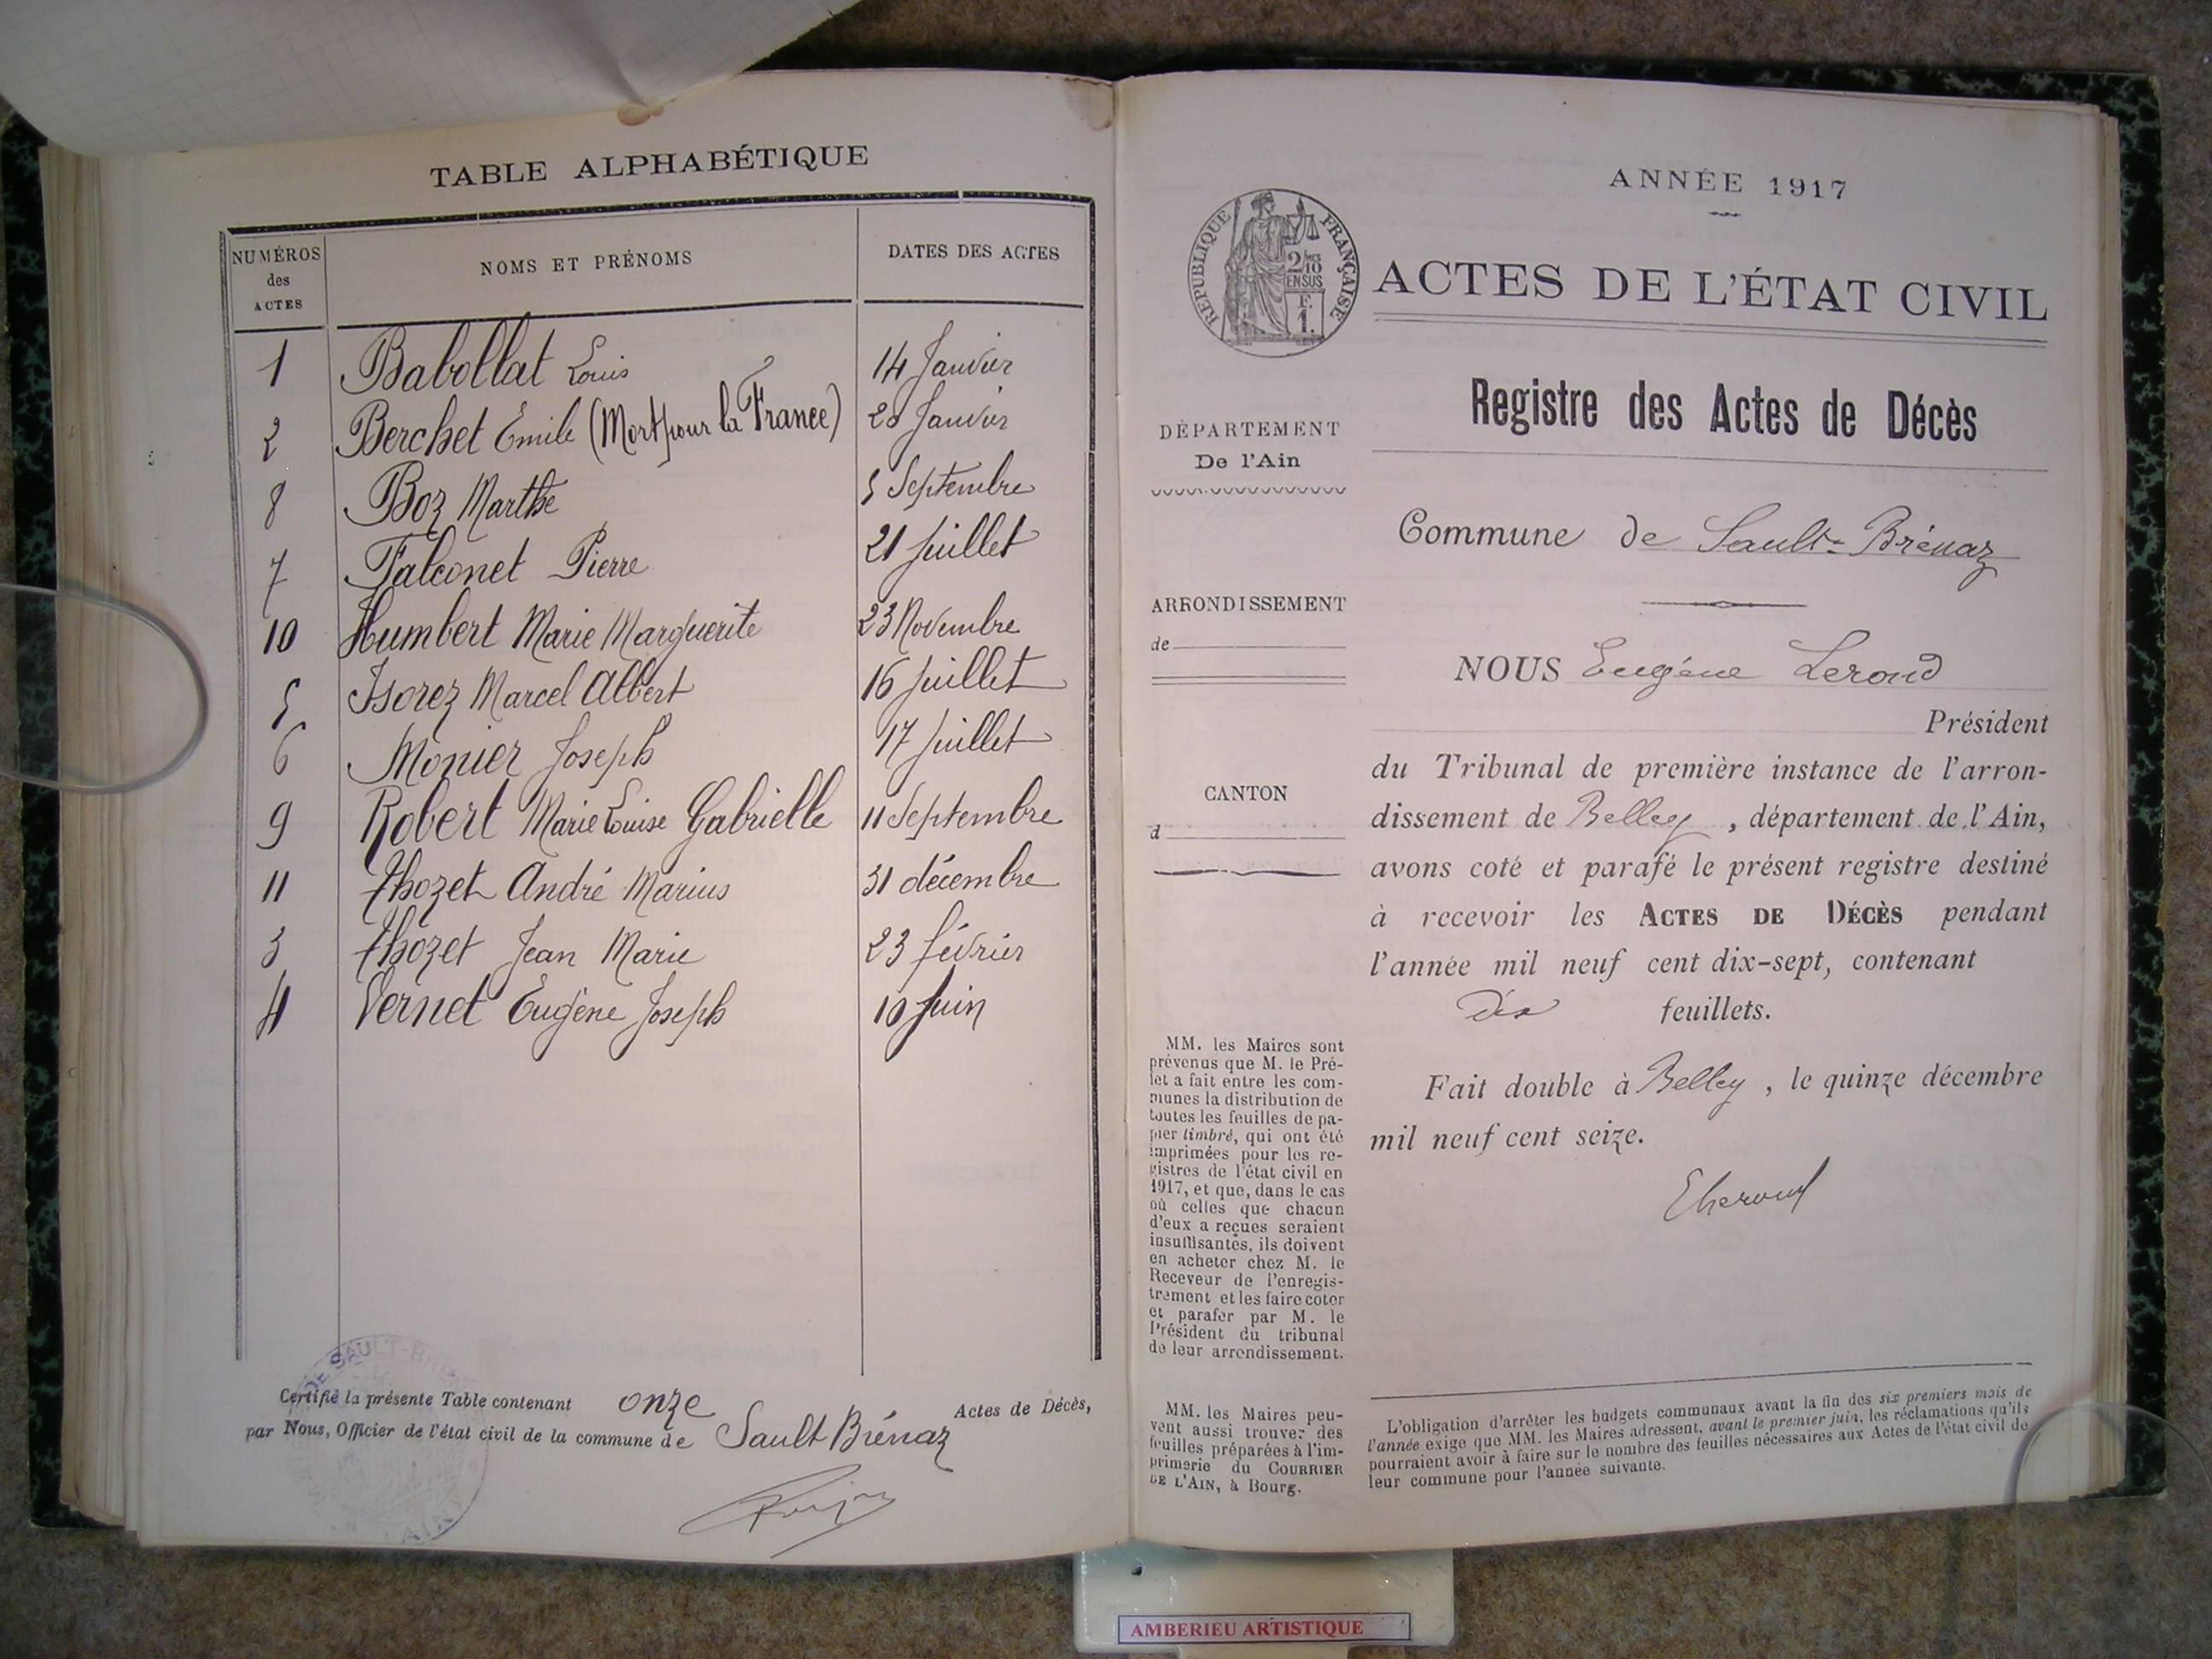 TABLE ALPHABÉTIQUE
NUMÉROS des ACTES
NOMS ET PRÉNOMS
DATES DES ACTES
1 Babollat Louis 14 Janvier
2 Berchet Emile (Mort pour la France) 20 Janvier
8 Boz Marthe 5 Septembre
7 Falconet Pierre 21 Juillet
10 Humbert Marie Marguerite 23 Novembre
5 Isorez Marcel Albert 16 Juillet
6 Monier Joseph 17 Juillet
9 Robert Marie Louise Gabrielle 11 Septembre
11 Thozet André Marius 31 décembre
3 Thozet Jean Marie 23 février
4 Vernet Eugène Joseph 10 Juin
Certifié la présente Table contenant onze Actes de Décès,
par Nous, Officier de l'état civil de la commune de Sault Brénaz
DE SAULT-BR
AIN
ANNÉE 1917
RÉPUBLIQUE FRANÇAISE
2/10
EN SUS
F.
1.
ACTES DE L'ÉTAT CIVIL
Registre des Actes de Décès
DÉPARTEMENT
De l'Ain
ARRONDISSEMENT
de
CANTON
d
MM. les Maires sont
prévenus que M. le Pré-
fet a fait entre les com-
munes la distribution de
toutes les feuilles de pa-
pier timbré, qui ont été
imprimées pour les re-
gistres de l'état civil en
1917, et que, dans le cas
où celles que chacun
d'eux a reçues seraient
insuffisantes, ils doivent
en acheter chez M. le
Receveur de l'enregis-
trement et les faire coter
et parafer par M. le
Président du tribunal
de leur arrondissement.
MM. les Maires peu-
vent aussi trouver des
feuilles préparées à l'im-
primerie du COURRIER
DE L'AIN, à Bourg.
Commune de Sault-Brénaz
NOUS Eugène Leroud
Président
du Tribunal de première instance de l'arron-
dissement de Belley, département de l'Ain,
avons coté et parafé le présent registre destiné
à recevoir les ACTES DE DÉCÈS pendant
l'année mil neuf cent dix-sept, contenant
dix feuillets.
Fait double à Belley, le quinze décembre
mil neuf cent seize.
L'obligation d'arrêter les budgets communaux avant la fin des six premiers mois de
l'année exige que MM. les Maires adressent, avant le premier juin, les réclamations qu'ils
pourraient avoir à faire sur le nombre des feuilles nécessaires aux Actes de l'état civil de
leur commune pour l'année suivante.
AMBERIEU ARTISTIQUE